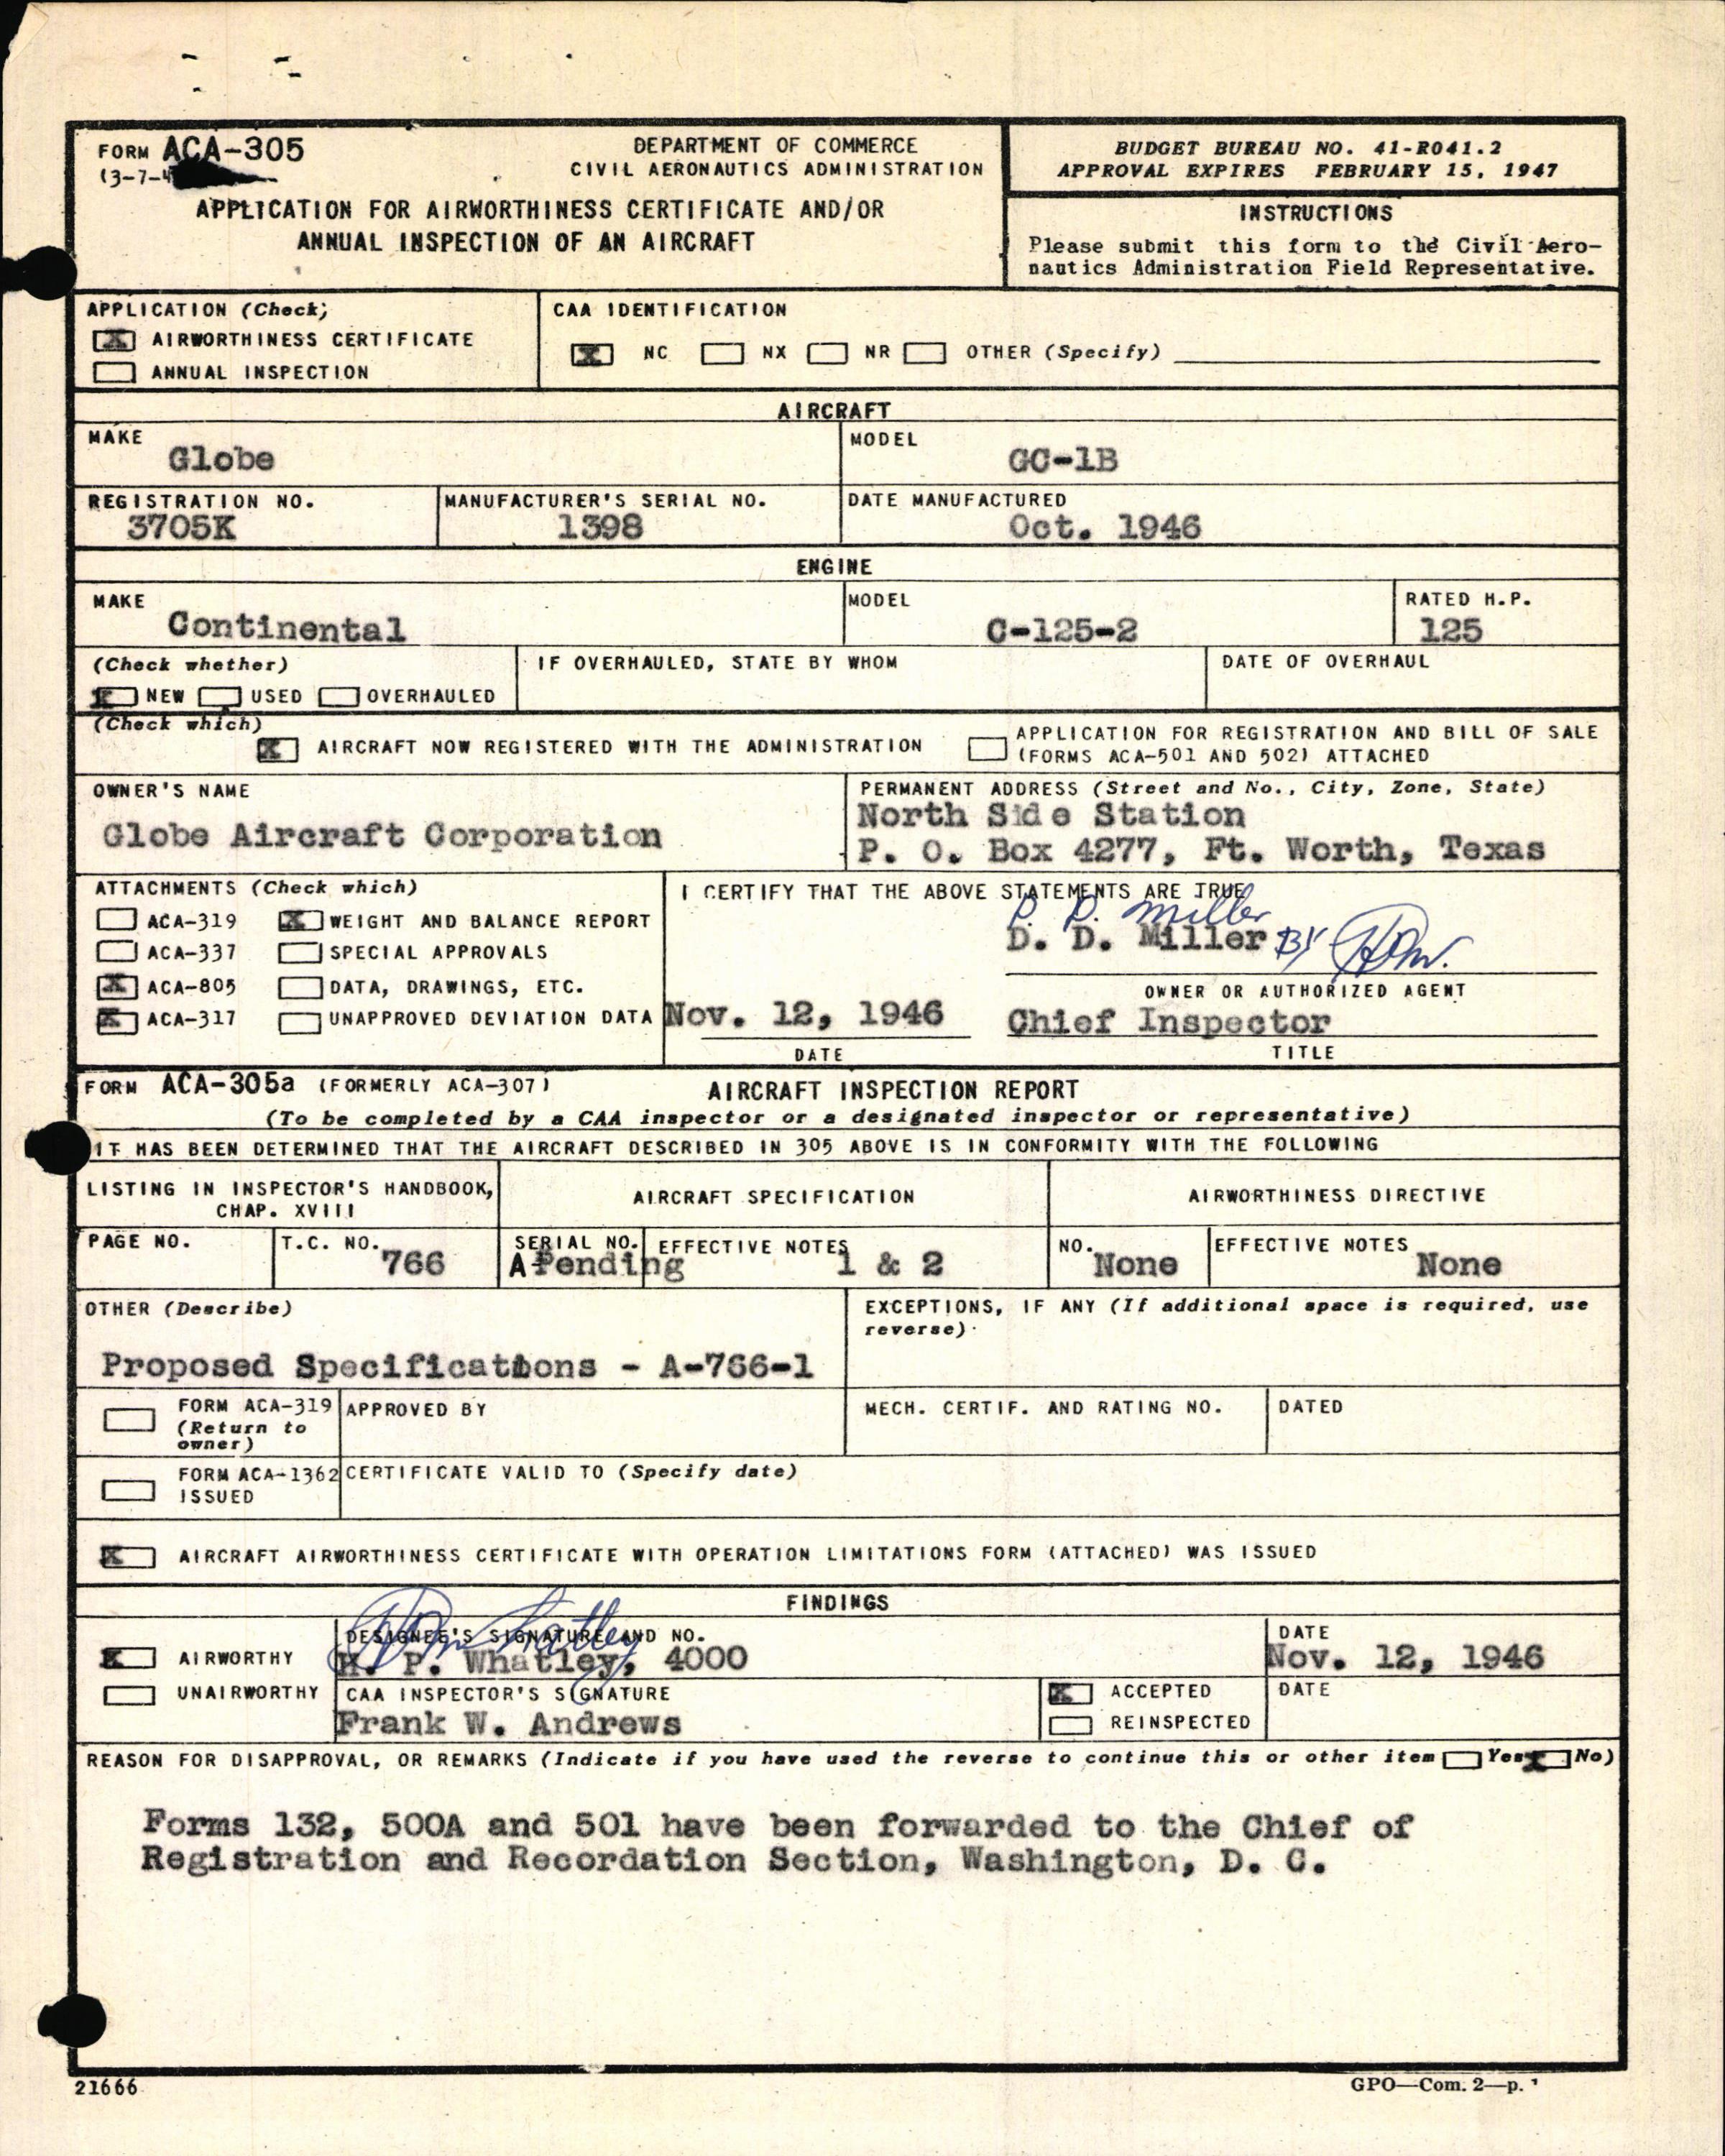 FORM ACA-305
(3-7-4
DEPARTMENT OF COMMERCE
CIVIL AERONAUTICS ADMINISTRATION
APPLICATION FOR AIRWORTHINESS CERTIFICATE AND/OR
ANNUAL INSPECTION OF AN AIRCRAFT
BUDGET BUREAU NO. 41-R041.2
APPROVAL EXPIRES FEBRUARY 15, 1947
INSTRUCTIONS
Please submit this form to the Civil Aero-
nautics Administration Field Representative.
APPLICATION (Check)
X AIRWORTHINESS CERTIFICATE
ANNUAL INSPECTION
CAA IDENTIFICATION
X NC NX NR OTHER (Specify)
AIRCRAFT
MAKE
Globe
MODEL
GC-1B
REGISTRATION NO.
3705K
MANUFACTURER'S SERIAL NO.
1398
DATE MANUFACTURED
Oct. 1946
ENGINE
MAKE
Continental
MODEL
C-125-2
RATED H.P.
125
(Check whether)
X NEW USED OVERHAULED
IF OVERHAULED, STATE BY WHOM
DATE OF OVERHAUL
(Check which)
X AIRCRAFT NOW REGISTERED WITH THE ADMINISTRATION
APPLICATION FOR REGISTRATION AND BILL OF SALE
(FORMS ACA-501 AND 502) ATTACHED
OWNER'S NAME
Globe Aircraft Corporation
PERMANENT ADDRESS (Street and No., City, Zone, State)
North Side Station
P. O. Box 4277, Ft. Worth, Texas
ATTACHMENTS (Check which)
ACA-319 X WEIGHT AND BALANCE REPORT
ACA-337 SPECIAL APPROVALS
X ACA-805 DATA, DRAWINGS, ETC.
X ACA-317 UNAPPROVED DEVIATION DATA
I CERTIFY THAT THE ABOVE STATEMENTS ARE TRUE
D. D. Miller
D. D. Miller By
OWNER OR AUTHORIZED AGENT
Nov. 12, 1946
DATE
Chief Inspector
TITLE
FORM ACA-305a (FORMERLY ACA-307)
AIRCRAFT INSPECTION REPORT
(To be completed by a CAA inspector or a designated inspector or representative)
IT HAS BEEN DETERMINED THAT THE AIRCRAFT DESCRIBED IN 305 ABOVE IS IN CONFORMITY WITH THE FOLLOWING
LISTING IN INSPECTOR'S HANDBOOK,
CHAP. XVIII
AIRCRAFT SPECIFICATION
AIRWORTHINESS DIRECTIVE
PAGE NO.
T.C. NO.
766
SERIAL NO.
A Pending
EFFECTIVE NOTES
1 & 2
NO.
None
EFFECTIVE NOTES
None
OTHER (Describe)
Proposed Specifications - A-766-1
EXCEPTIONS, IF ANY (If additional space is required, use
reverse)
FORM ACA-319
(Return to
owner)
APPROVED BY
MECH. CERTIF. AND RATING NO.
DATED
FORM ACA-1362
ISSUED
CERTIFICATE VALID TO (Specify date)
X AIRCRAFT AIRWORTHINESS CERTIFICATE WITH OPERATION LIMITATIONS FORM (ATTACHED) WAS ISSUED
FINDINGS
X AIRWORTHY
UNAIRWORTHY
DESIGNEE'S SIGNATURE AND NO.
H. P. Whatley, 4000
DATE
Nov. 12, 1946
CAA INSPECTOR'S SIGNATURE
Frank W. Andrews
X ACCEPTED
REINSPECTED
DATE
REASON FOR DISAPPROVAL, OR REMARKS (Indicate if you have used the reverse to continue this or other item Yes X No)
Forms 132, 500A and 501 have been forwarded to the Chief of
Registration and Recordation Section, Washington, D. C.
21666
GPO—Com. 2—p.